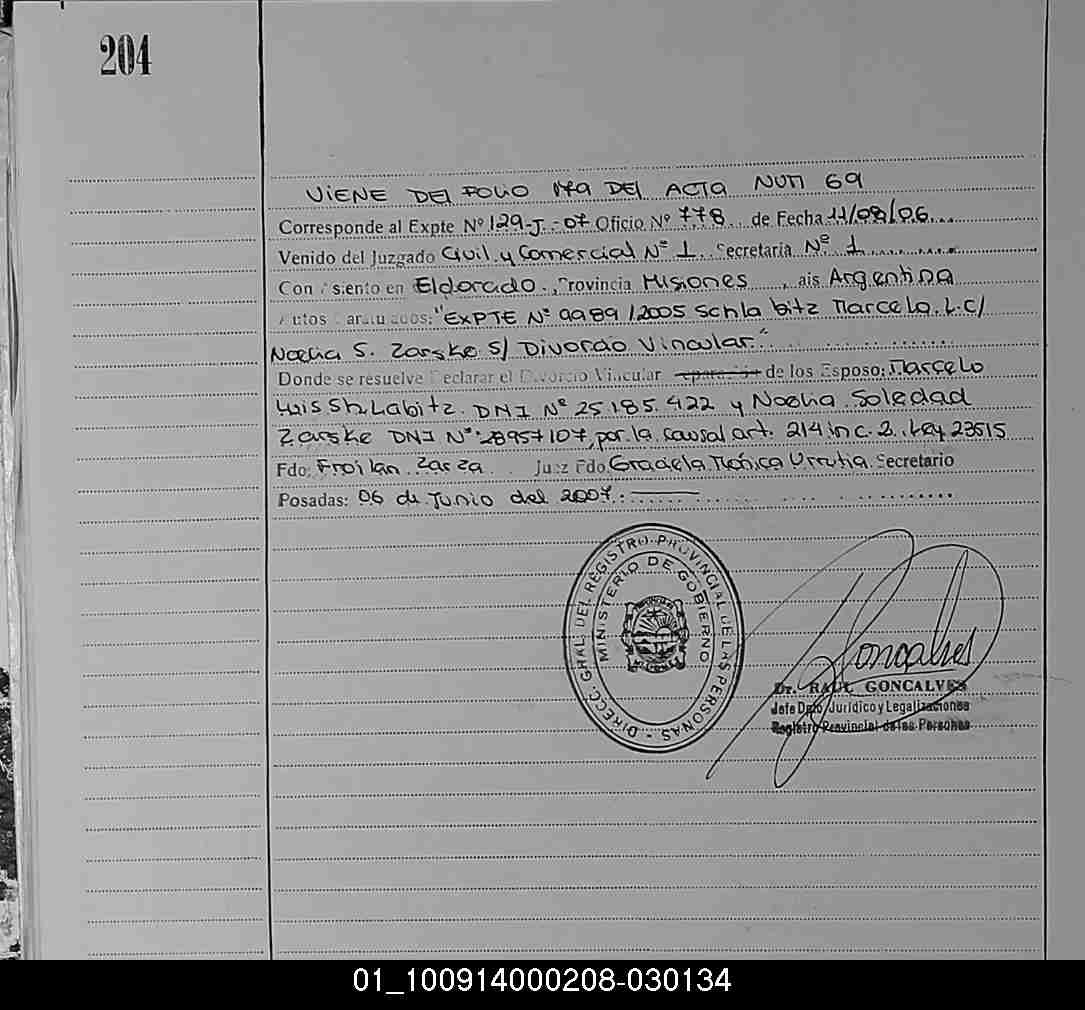 204
VIENE DEL FOLIO DEL ACTA NUM 69
Corresponde al Expte Nº 129-J-07 Oficio Nº 778 de Fecha 11/08/06
Venido del Juzgado Civil y Comercial Nº 1 Secretaria Nº 1
Con Asiento en Eldorado Provincia Misiones, ais Argentina
Autos Caratulados: "EXPTE Nº 9989/2005 Schla bitz Marcelo L. C/
Noelia S. Zarske S/ Divorcio Vincular"
Donde se resuelve Declarar el Divorcio Vincular de los Esposo: Marcelo
Luis DNI Nº 25.185.422 y Noelia Soledad
Zarske DNI Nº: 28957107, por la causal art. 214 inc. 2. Ley 23515
Fdo: Froilan Zarza Juez Fdo Graciela Mónica Urrutia Secretario
Posadas: 06 de Junio del 2007.
DIRECC. GRAL. DEL REGISTRO PROVINCIAL DE LAS PERSONAS
MINISTERIO DE GOBIERNO
Goncalves
Dr. RAUL GONCALVES
Jefe Dpto Jurídico y Legalizaciones
Registro Provincial de las Personas
01_100914000208-030134